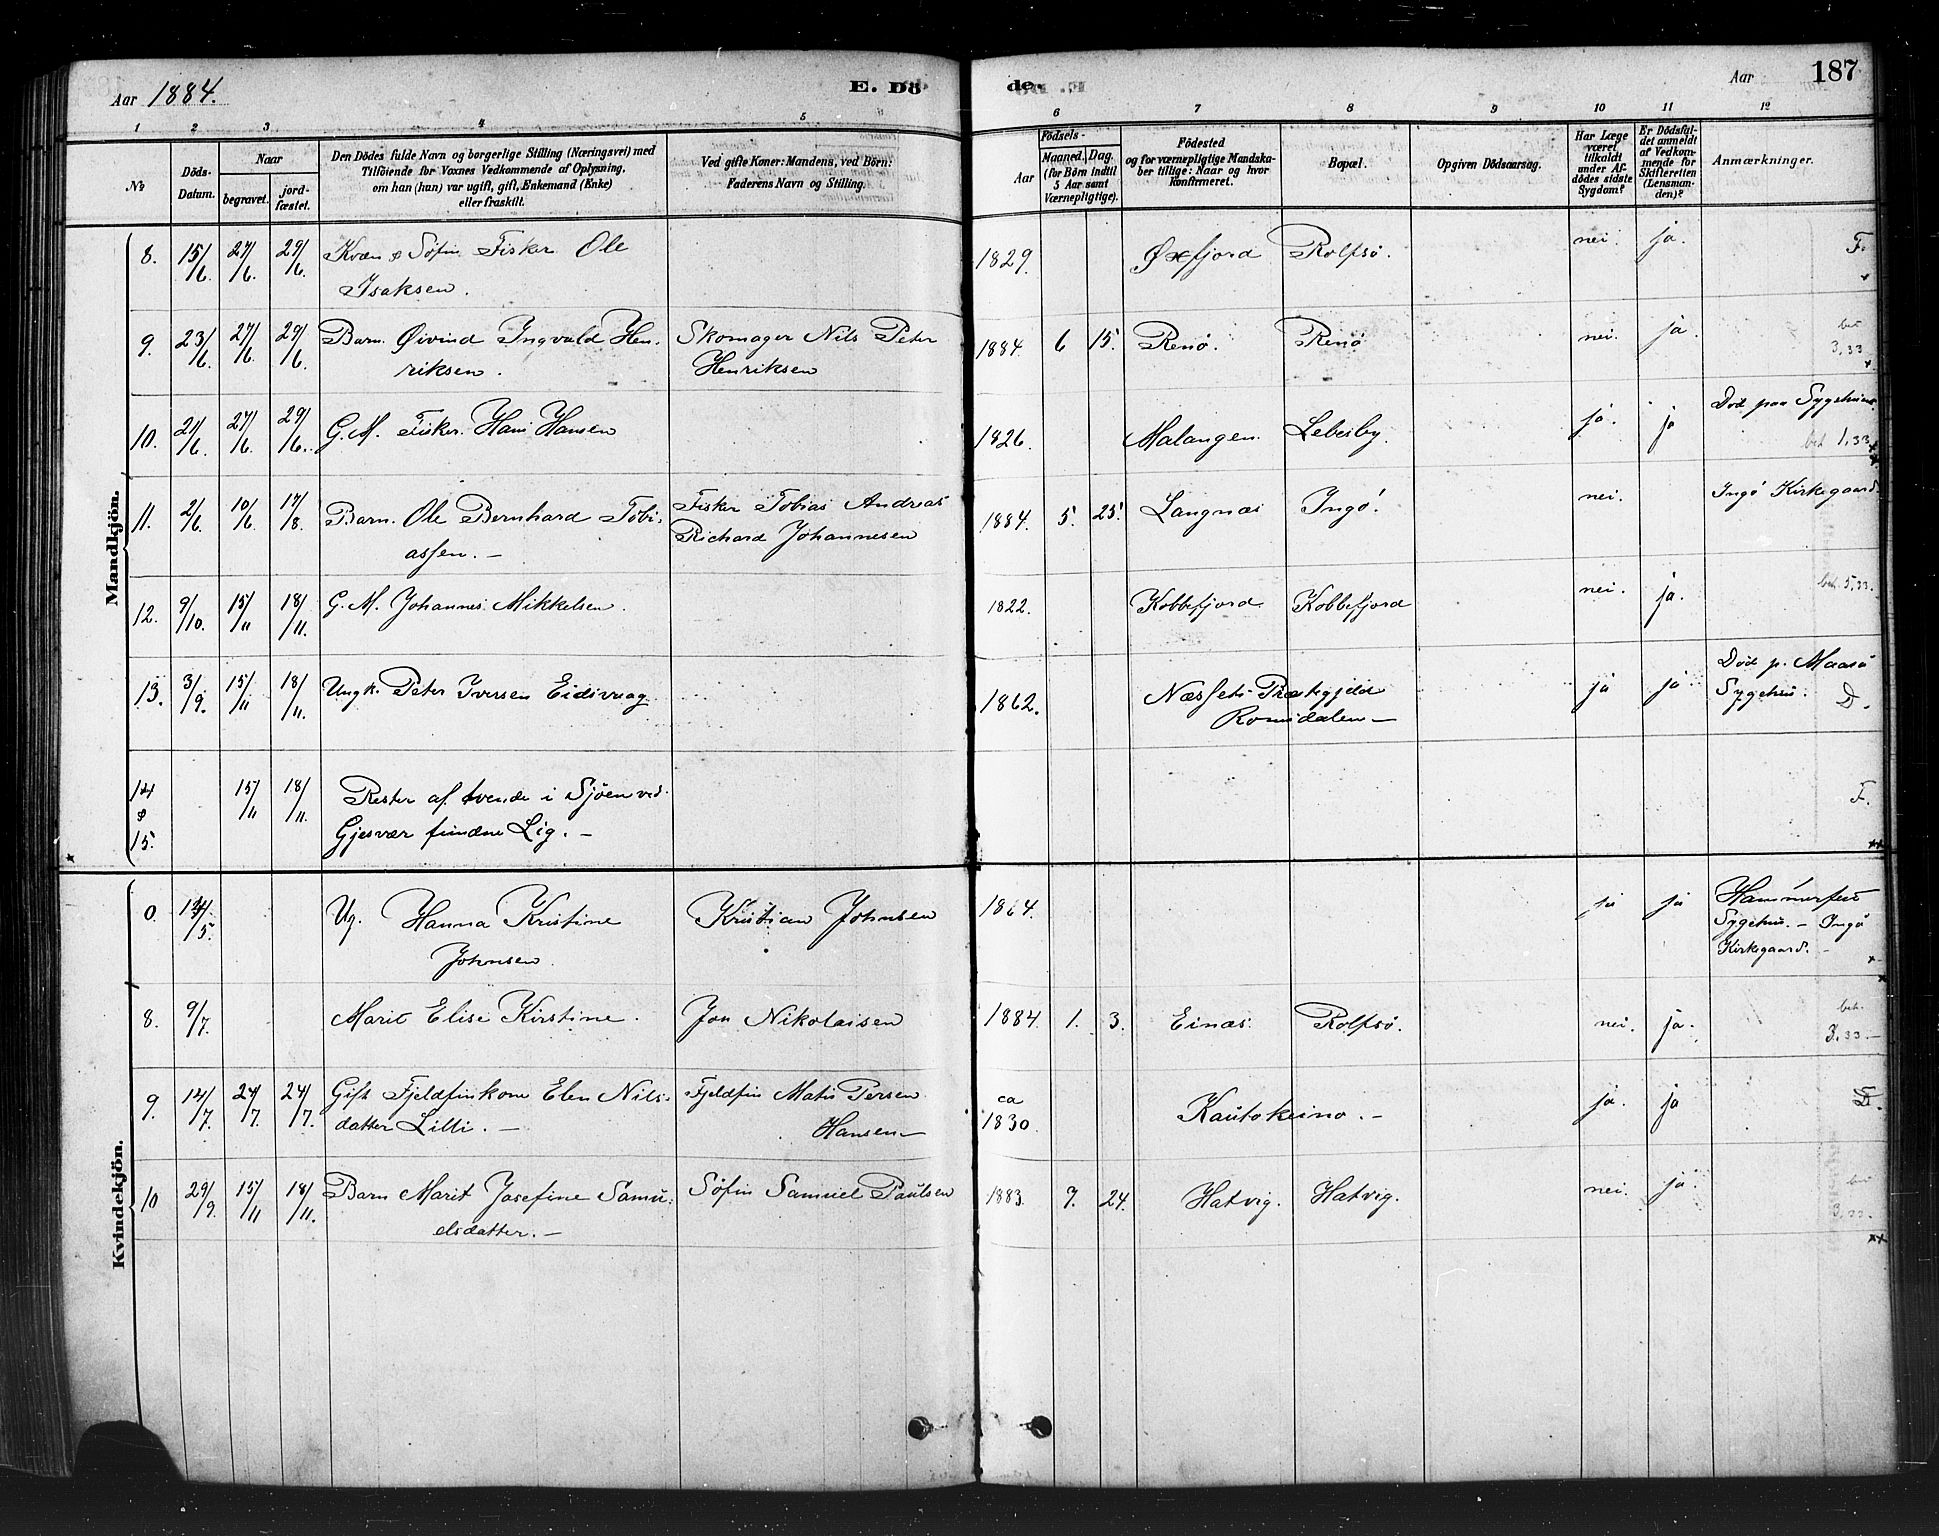 Aar 1884.
E. Dö
de.
Aar
187
1 2 3 4 5 6 7 8 9 10 11 12
№
Döds-
Datum.
Naar
begravet.
jord-
fæstet.
Den Dödes fulde Navn og borgerlige Stilling (Næringsvei) med
Tilföiende for Voxnes Vedkommende af Oplysning,
om han (hun) var ugift, gift, Enkemand (Enke)
eller fraskilt.
Ved gifte Koner: Mandens, ved Börn:
Faderens Navn og Stilling.
Födsels-
Aar
Maaned. Dag.
(for Börn indtil
5 Aar samt
Værnepligtige).
Födested
og for værnepligtige Mandska-
ber tillige: Naar og hvor
Konfirmeret.
Bopæl.
Opgiven Dödsaarsag.
Har Læge
været
tilkaldt
under Af-
dødes sidste
Sygdom?
Er Dödsfal-
det anmeldt
af Vedkom-
mende for
Skifteretten
(Lensman-
den)?
Anmærkninger.
Mandkjön.
8. 15/6 27/6 29/6. Kvæn & Søfin Fisker Ole 1829. Øxfjord Rolfsø. nei. ja. F.
Isaksen.
9. 23/6 27/6 29/6. Barn. Øivind Ingvald Hen- Skomager Nils Peter 1884. 6 15. Renø. Renø nei. ja. bet
riksen. Henriksen 3,33
10. 21/6 27/6 29/6. G. M. Fisker. Hans Hansen 1826. Malangen. Lebesby. ja. ja Død paa Sygehuus.
bet 1,33
11. 2/6 10/6 17/8. Barn. Ole Bernhard Tobi- Fisker Tobias Andreas 1884. 5. 25. Langnæs Ingø. nei. Ingø Kirkegaard.
assen. — Richard Johannesen
12. 9/10. 15/11 18/11. G. M. Johannes Mikkelsen. 1822. Kobbefjord Kobbefjord nei. ja. bet. 5,33.
13. 3/9. 15/11 18/11. Ungk. Peter Iversen Eidsvaag 1862. Næssets Præstegjeld ja ja Død p. Maasø
Romsdalen — Sygehus. D.
14 & 15. 15/11 18/11. Rester af tvende i Sjøen ved F.
Gjesvær fundne Lig. —
Kvindekjön.
0. /5. Ug. Hanna Kristine Kristian Johnsen 1864. ja ja Hammerfest
Johnsen Sygehus. — Ingø
Kirkegaard. —
8. 9/7. Marit Elise Kirstine. Jon Nikolaisen 1884. 1. 3. Einæs. Rolfsø. nei. ja. bet.
3,33. —
9. 12/7 24/7 24/7. Gift Fjeldfinkone Elen Nils- Fjeldfin Matis Persen ca 1830. Kautokeino. — ja. ja D.
datter Lilli. — Hansen —
10 29/9. 15/11 18/11. Barn Marit Josefine Samu- Søfin Samuel Paulsen 1883. 9. 24. Hatvig. Hatvig. nei. ja. bet
elsdatter. — 3,33.